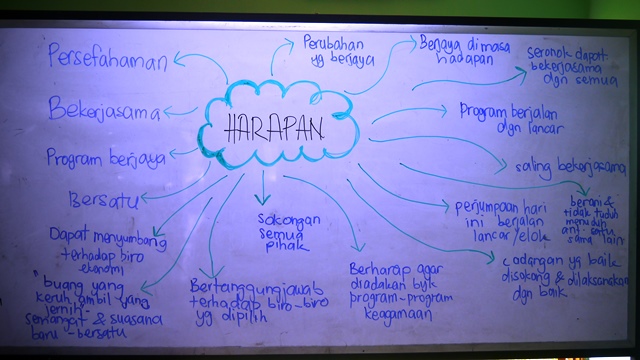 HARAPAN
Persefahaman
Bekerjasama
Program berjaya
Bersatu
Dapat menyumbang
terhadap biro
ekonomi
"buang yang
keruh ambil yang
jernih-
semangat & suasana
baru - bersatu
Bertanggungjawab
terhadap biro-biro
yg dipilih
sokongan
semua
pihak
Berharap agar
diadakan byk
program-program
keagamaan
Perubahan
yg berjaya
Berjaya dimasa
hadapan
seronok dapat
bekerjasama
dgn semua
Program berjalan
dgn lancar
saling bekerjasama
perjumpaan hari
ini berjalan
lancar/elok
berani &
tidak tuduh
menuduh
satu
sama lain
cadangan yg baik
disokong & dilaksanakan
dgn baik